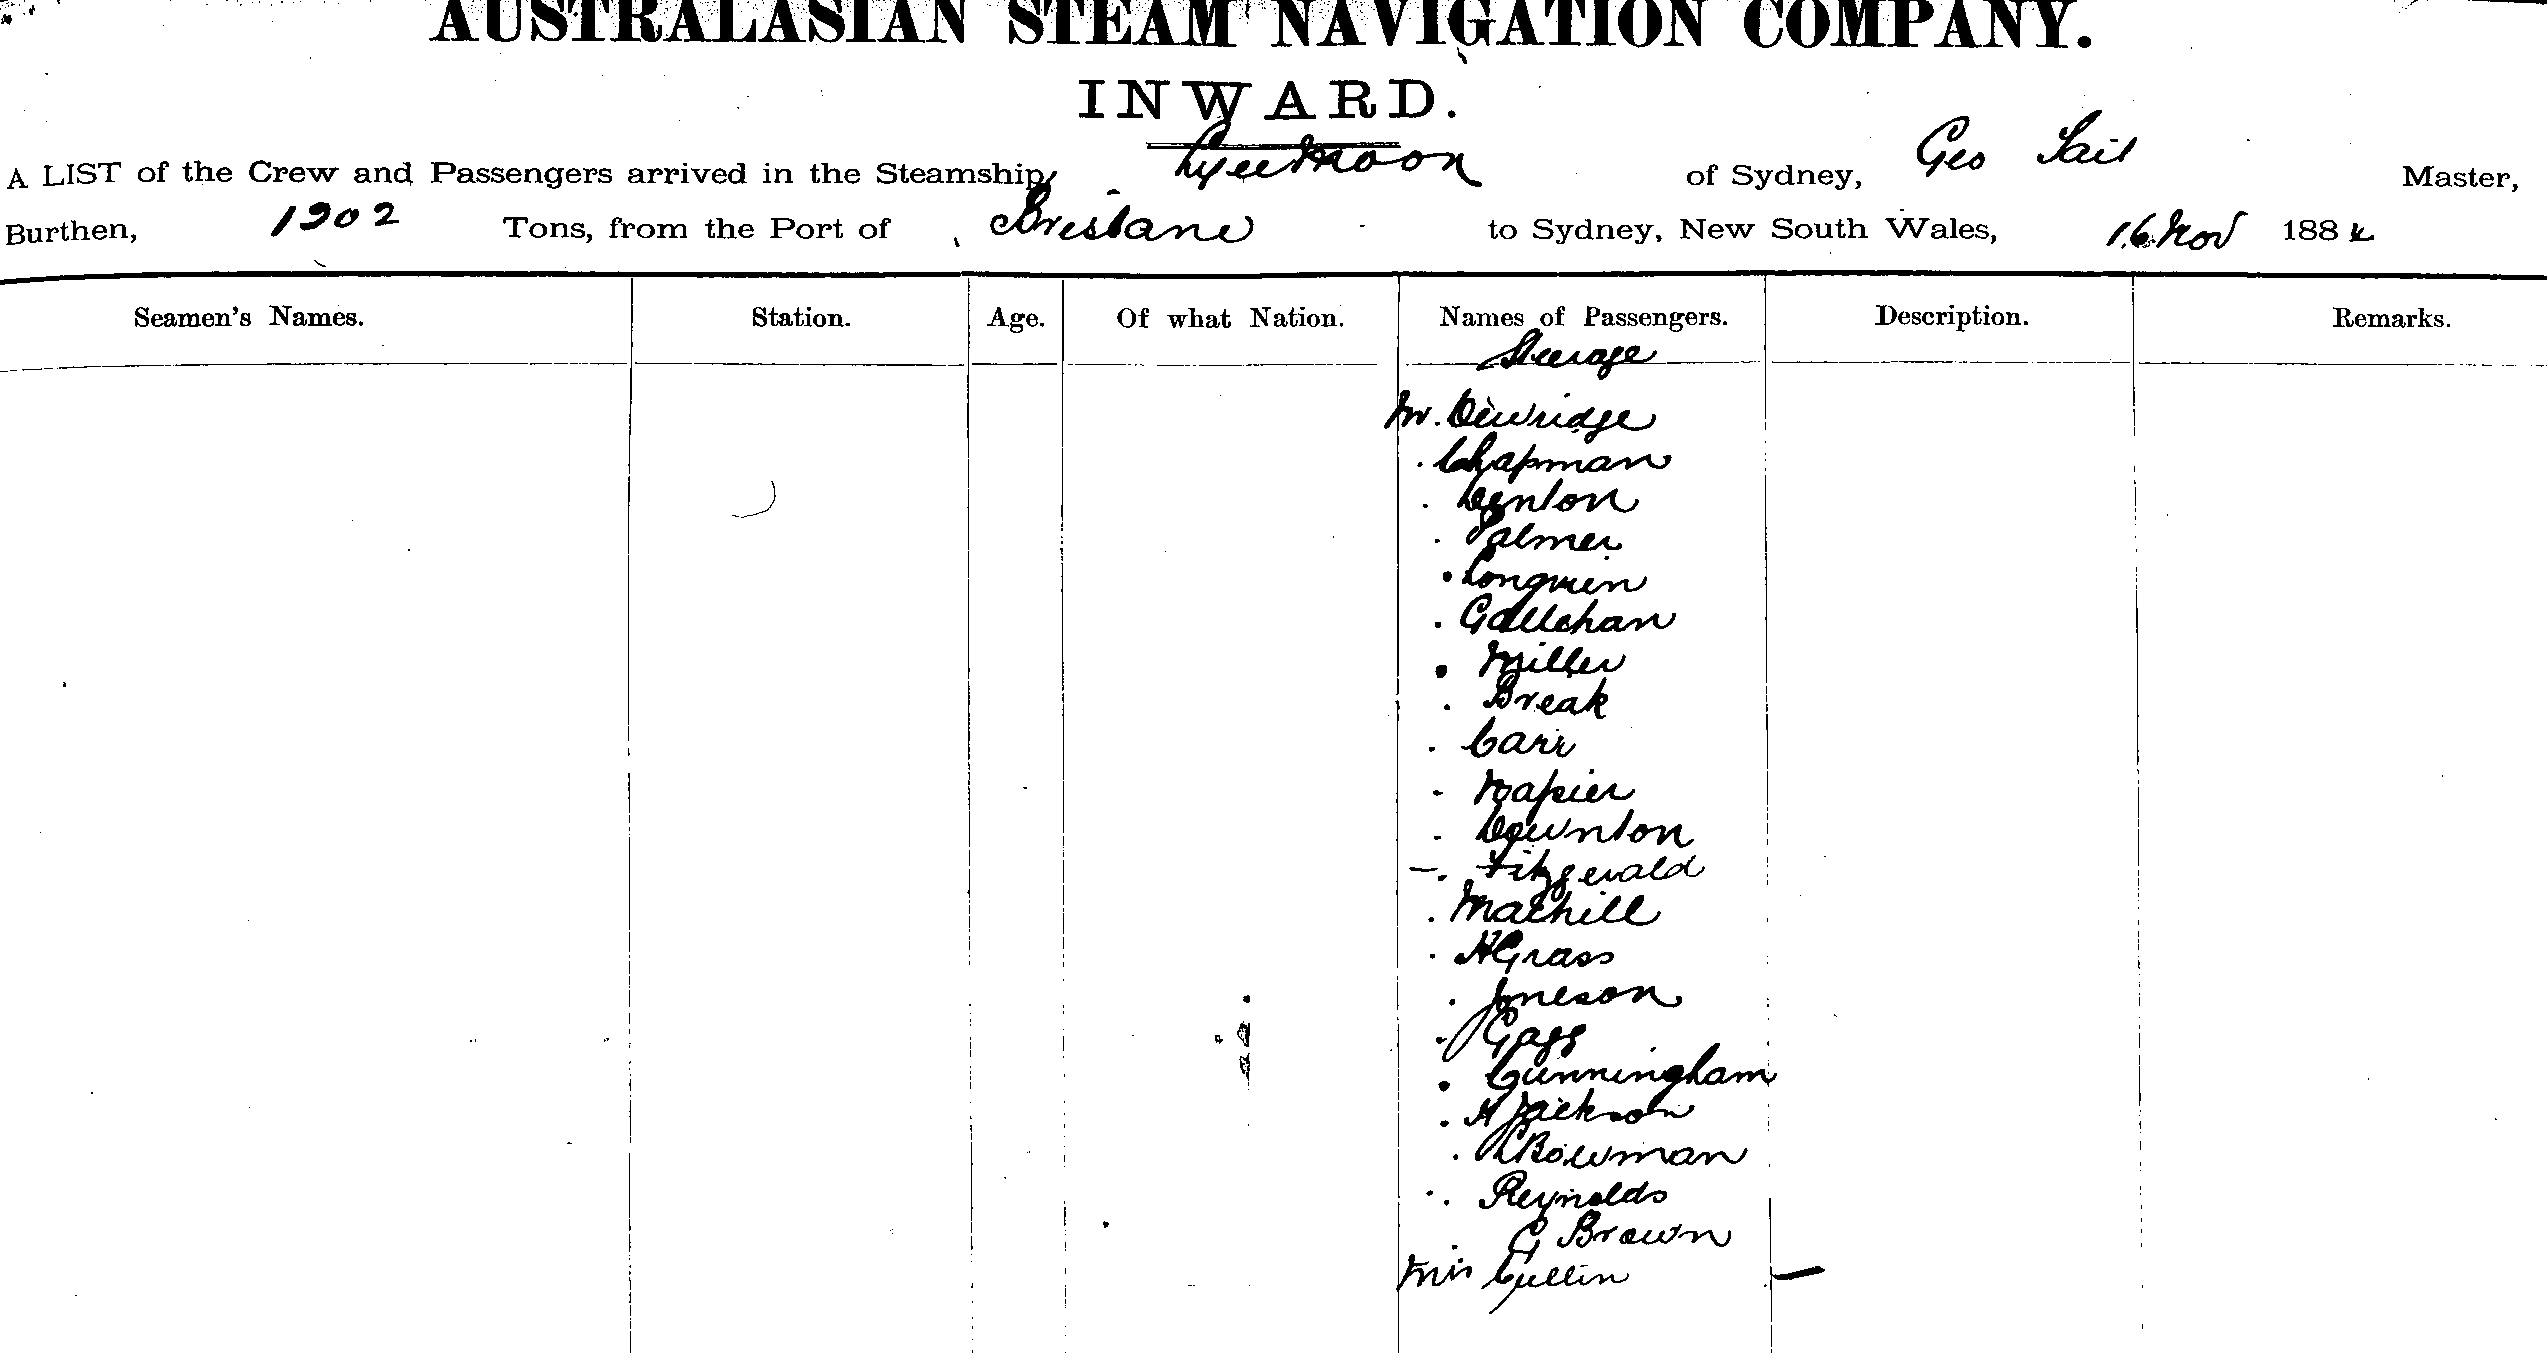 AUSTRALASIAN STEAM NAVIGATION COMPANY.
INWARD.
A LIST of the Crew and Passengers arrived in the Steamship, Lyeemoon of Sydney, Geo Master,
Burthen, 1202 Tons, from the Port of Brisbane to Sydney, New South Wales, 16 Nov 1884
Seamen's Names. Station. Age. Of what Nation. Names of Passengers. Description. Remarks.
Steerage
Mr.
Chapman
Denton
Palmer
Gallehan
Miller
Break
Carr
Napier
Downton
Fitzgerald
Machill
H Grass
Joneson
Gagg
Cunningham
H Jackson
Bowman
Reynolds
G Brown
Cullin